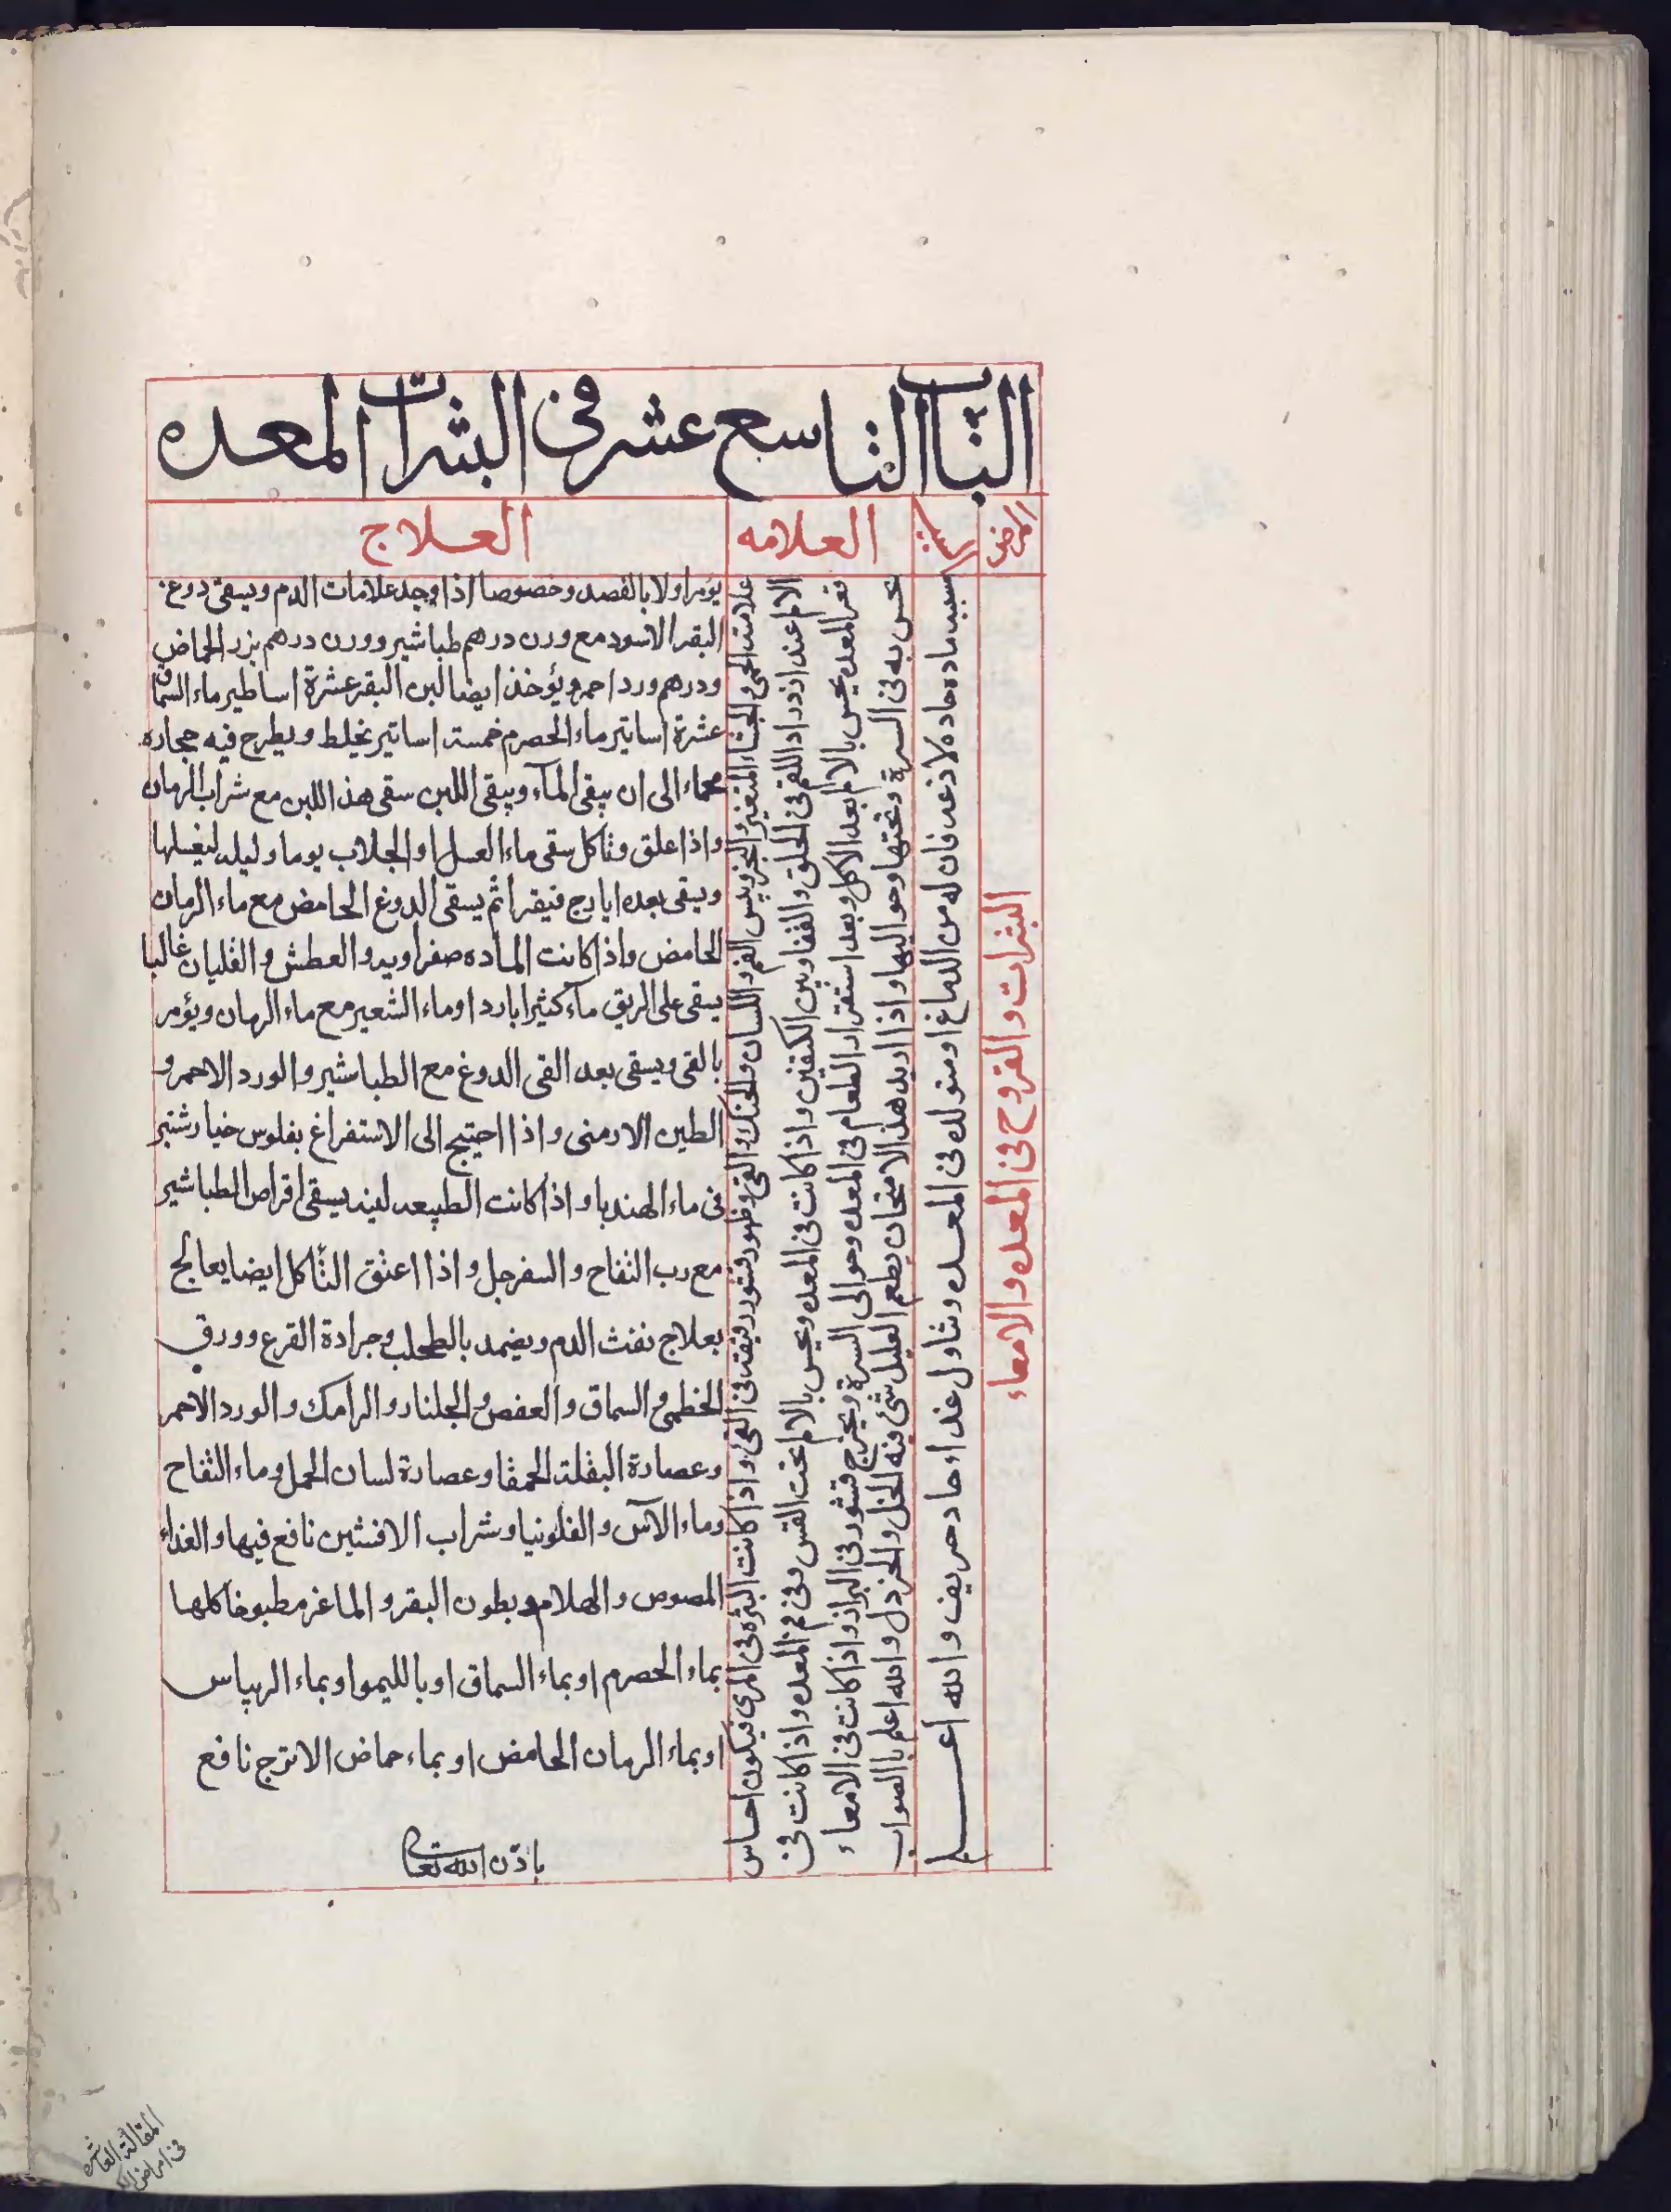 الباب التاسع عشر فى البثرات المعده
المرض
السبب
العلامه
العلاج
البثرات والقروح فى المعده والامعاء
سببه ماده حاده لاذعه فان له من الدماغ او متولده فى المعده وتناول غذاء حاد حريف والله اعلم
علامته الحمى والجشاء المتغير والبخر ويبس الفم واللسان والحنك والقى وظهور قشور رقيقه فى القى واذا كانت البثره فى المرى فيكون احساس
الالم عند ازدراد اللقم فى الحلق والقفا وبين الكتفين واذا كانت فى المعده ويحس بالالم تحت القس وفى فم المعده واذا كانت فى
قعر المعده يحس بالالم بعد الاكل وبعد استقرار الطعام فى المعده وحوالى السرة ويخرج قشور فى البراز واذا كانت فى الامعاء
يحس به فى السرة وتحتها وحواليها واذا اريد هذا الامتحان يطعم العليل شئ فيه الخل والخردل والله اعلم بالصواب
يؤمر اولا بالفصد وخصوصا اذا وجد علامات الدم ويسقى دوغ
البقر الاسود مع ورن درهم طباشير وورن درهم بزر الحماض
ودرهم ورد احمر ويؤخذ ايضا لبن البقر عشرة اساطير ماء السماق
عشرة اساتير ماء الحصرم خمسة اساتير يخلط ويطرح فيه حجاره
محماء الى ان يبقى المآء ويبقى اللبن سقى هذا اللبن مع شراب الرمان
واذا علق وتاكل سقى ماء العسل او الجلاب يوما وليله ليغسلها
ويقى بعده ايارج فيقرا ثم يسقى الدوغ الحامض مع ماء الرمان
الحامض واذا كانت الماده صفراويه والعطش والغليان غالبا
يسقى على الريق مآء كثيرا بارد او ماء الشعير مع ماء الرهان ويؤمر
بالقى ويسقى بعد القى الدوغ مع الطباشير والورد الاحمر و
الطين الارمنى واذا احتيج الى الاستفراغ بفلوس خيارشنبر
فى ماء الهندبا واذا كانت الطبيعه لينه يسقى اقراص الطباشير
مع رب التفاح والسفرجل واذا اعتق التأكل ايضا يعالج
بعلاج نفث الدم ويضمد بالطحلب وجرادة القرع وورق
الخطمى والسماق والعفص والجلنار والرامك والورد الاحمر
وعصارة البقلة الحمقا وعصارة لسان الحمل وماء التفاح
وماء الآس والفلونيا وشراب الافسنتين نافع فيها والغذاء
المصوص والهلام وبطون البقر والماغر مطبوخا كلها
بماء الحصرم او بماء السماق او بالليمو او بماء الريباس
او بماء الرمان الحامض او بماء حماض الاترج نافع
باذن الله تعالى
المقالة العاشره
فى امراض الكبد